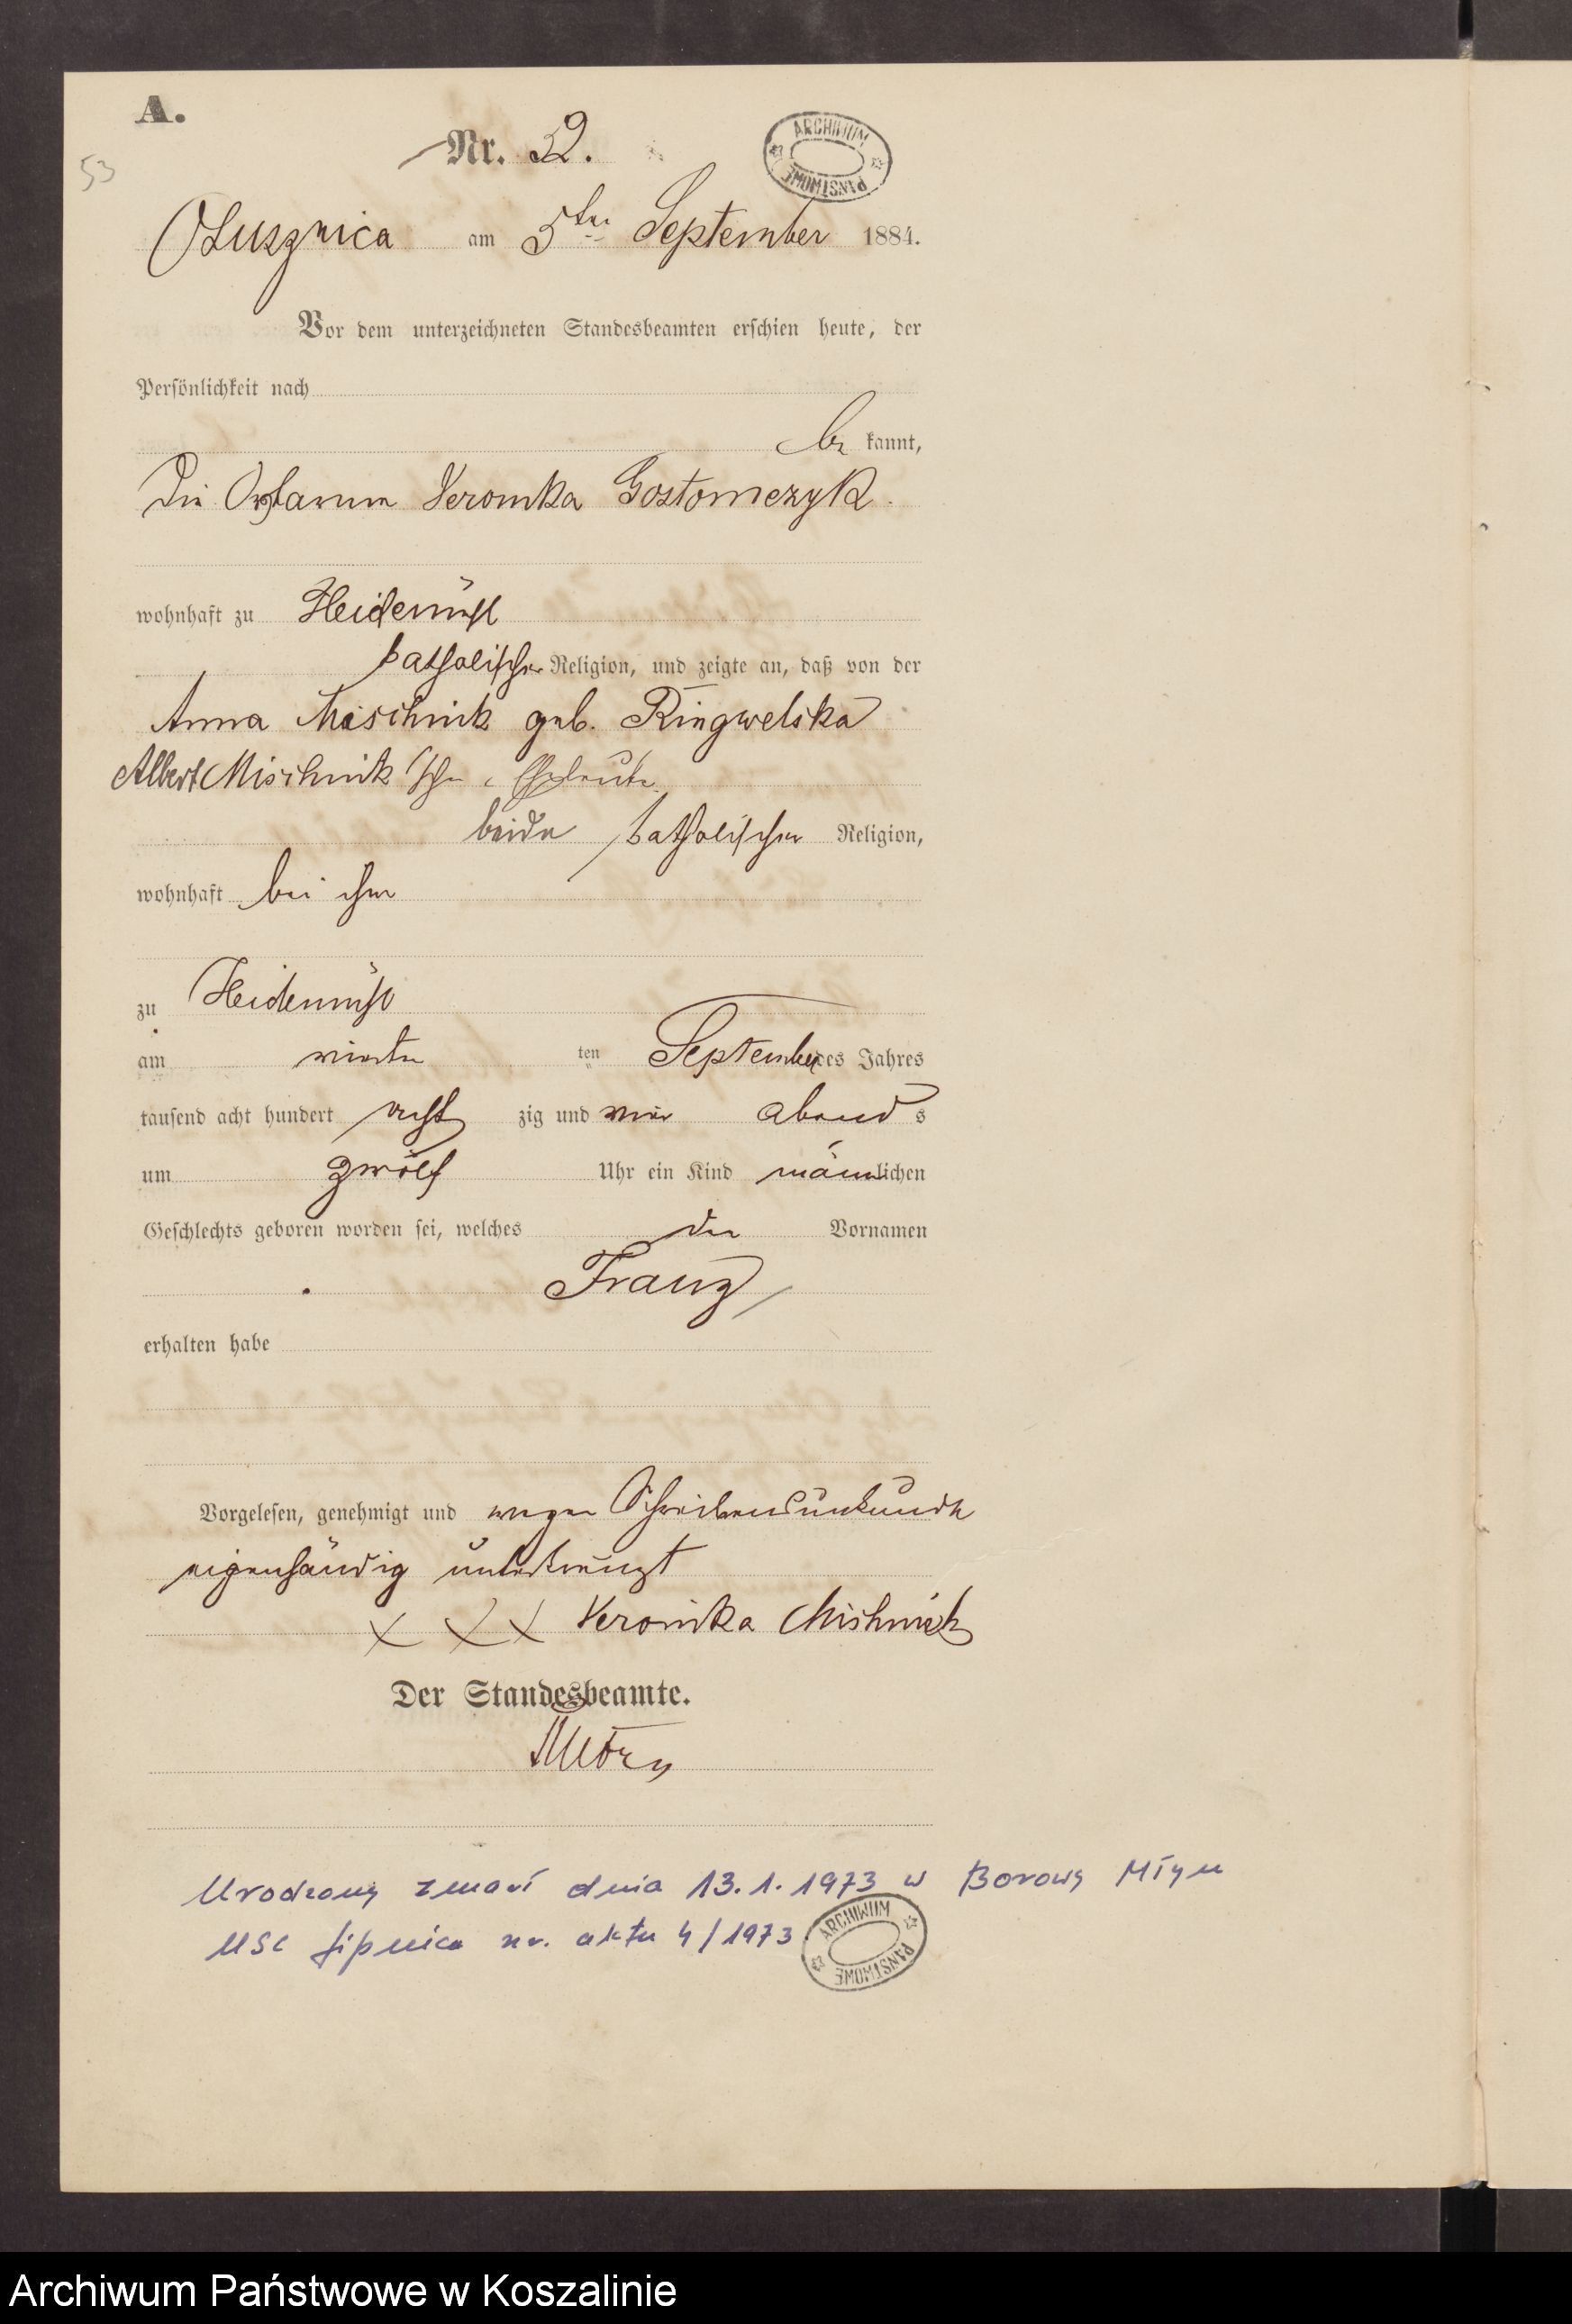 A.
53
Nr. 52.
ARCHIWUM PAŃSTWOWE
Oslusznica am 5ten September 1884.
Vor dem unterzeichneten Standesbeamten erschien heute, der
Persönlichkeit nach
be kannt,
Die Ortsarme Veronika Gostomczyk
wohnhaft zu Heidemühl
katholischer Religion, und zeigte an, daß von der
Anna Mischnik geb. Ringwelska
Albert Mischnik'schen Eheleute
beide katholischer Religion,
wohnhaft bei ihm
zu Heidemühl
am vierten ten September des Jahres
tausend acht hundert acht zig und vier abends
um zwölf Uhr ein Kind männlichen
Geschlechts geboren worden sei, welches den Vornamen
Franz
erhalten habe
Vorgelesen, genehmigt und wegen Schreibensunkunde
eigenhändig unterkreuzt
X X X Veronika Mishnick
Der Standesbeamte.
Urodzony zmarł dnia 13.1.1973 w Borowy Młyn
USC Lipnica nr. aktu 4/1973
ARCHIWUM PAŃSTWOWE
Archiwum Państwowe w Koszalinie